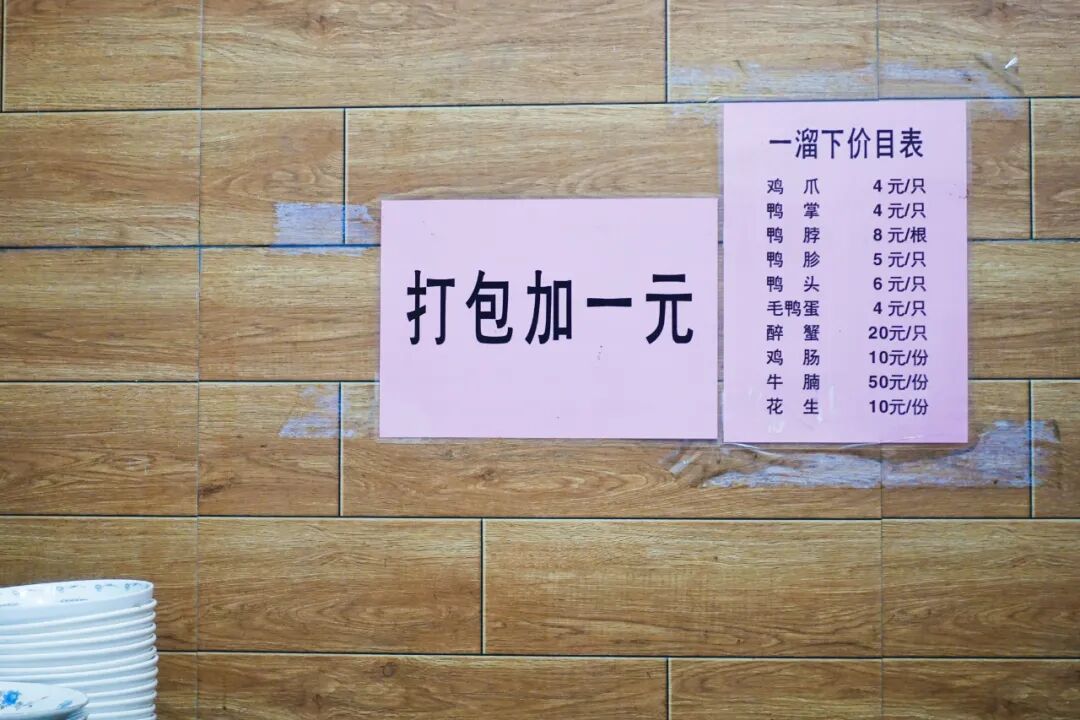 打包加一元
一溜下价目表
鸡 爪 4 元/只
鸭 掌 4 元/只
鸭 脖 8 元/根
鸭 胗 5 元/只
鸭 头 6 元/只
毛鸭蛋 4 元/只
醉 蟹 20元/只
鸡 肠 10元/份
牛 腩 50元/份
花 生 10元/份